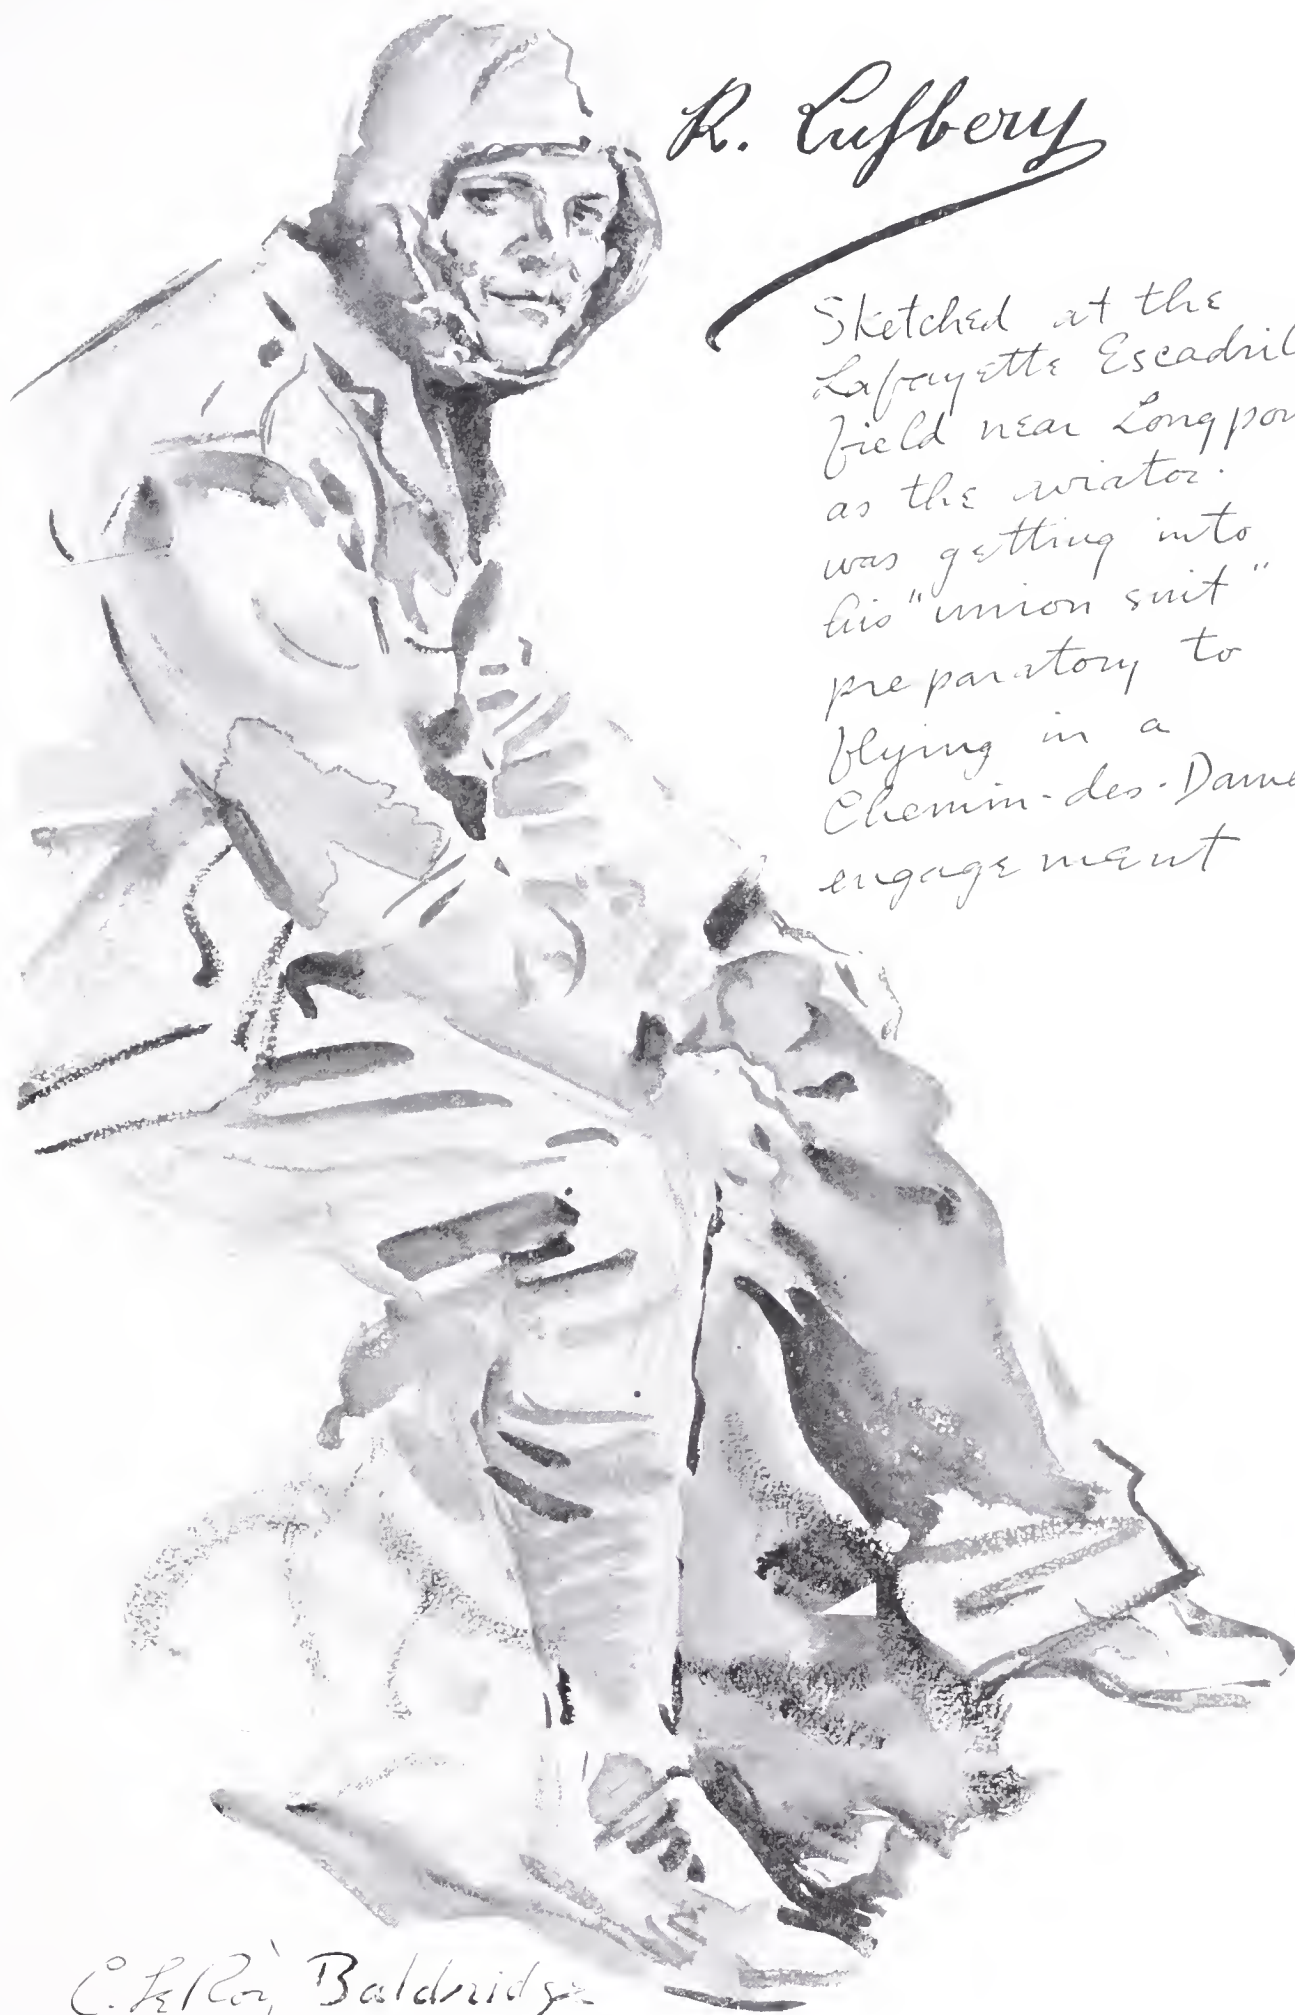 R. Lufbery
Sketched at the
Lafayette Escadril
field near Longpon
as the aviator
was getting into
his "union suit"
preparatory to
flying in a
Chemin-des-Dame
engagement
C. LeRoy Baldridge